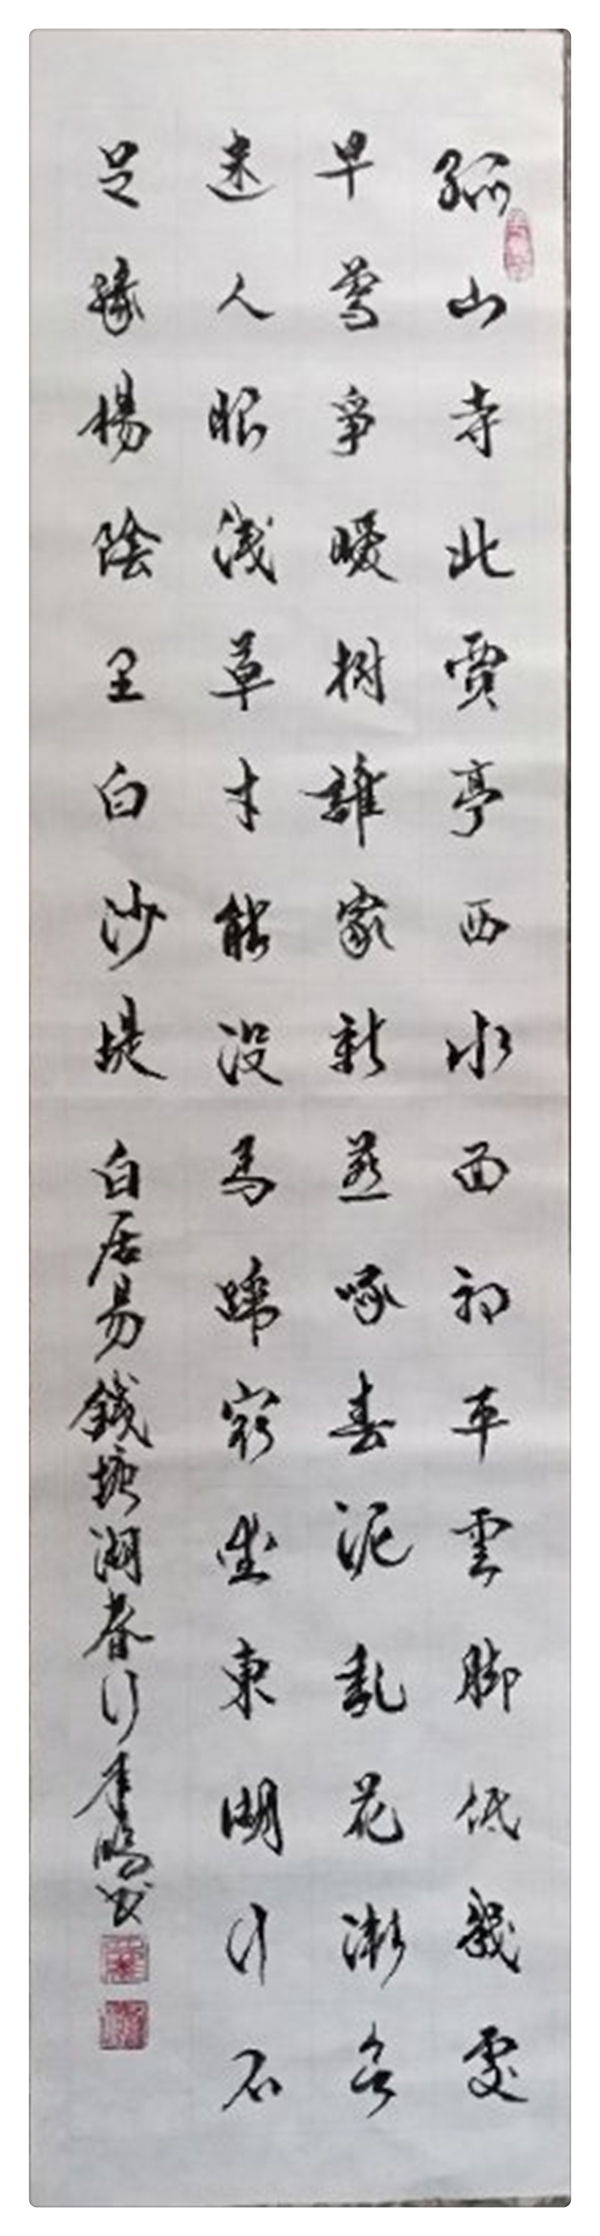 孤山寺北賈亭西水面初平雲脚低幾處
早鶯爭暖樹誰家新燕啄春泥亂花漸欲
迷人眼淺草才能沒馬蹄最愛東湖行不
足緑楊陰里白沙堤 白居易錢塘湖春行